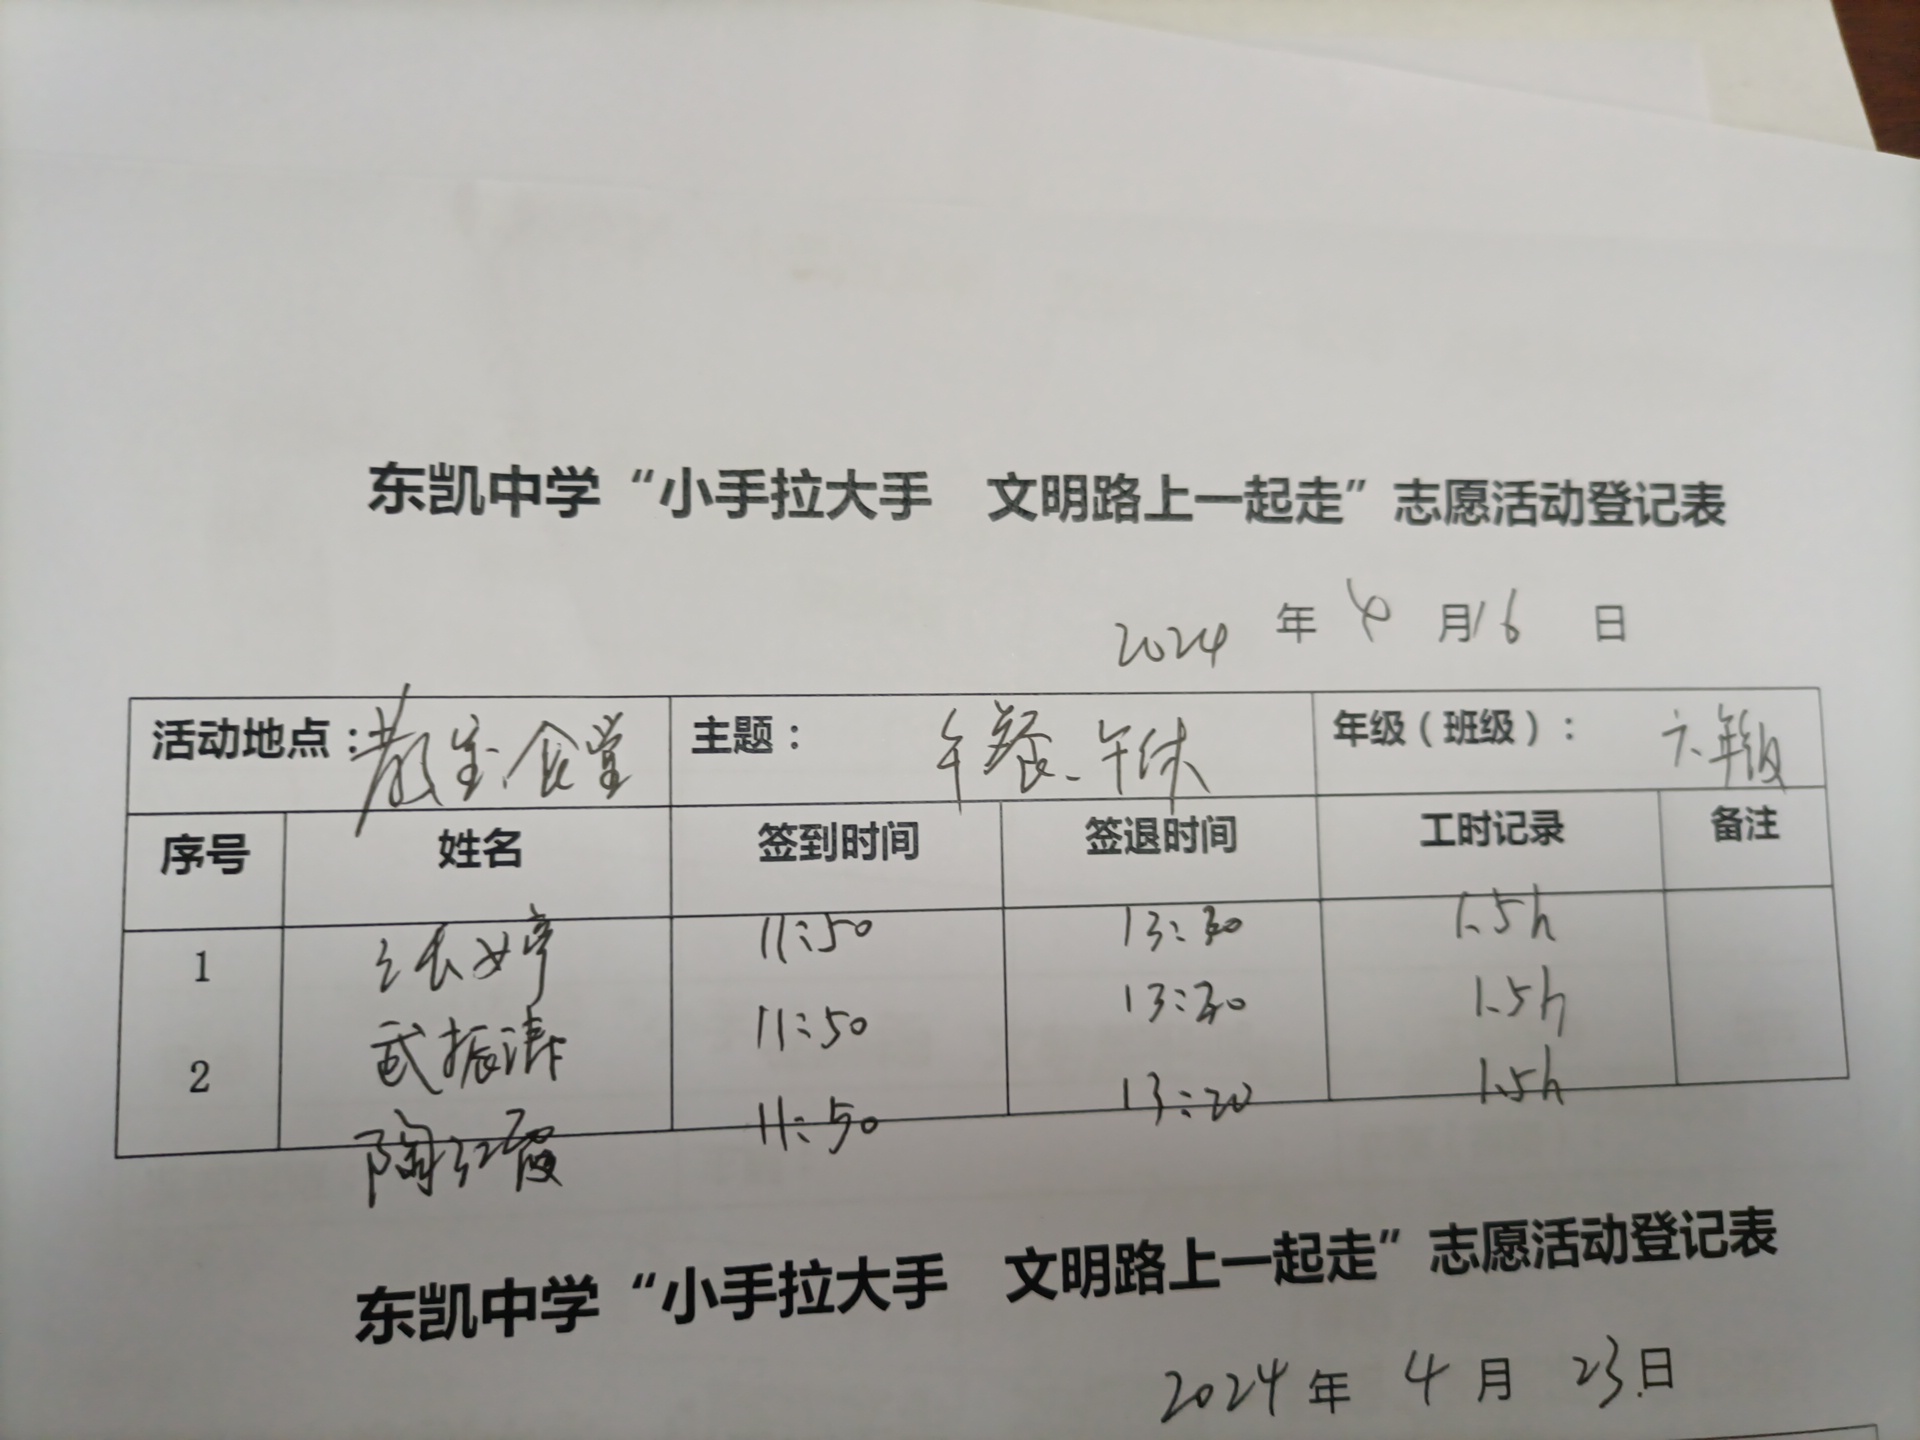 东凯中学“小手拉大手 文明路上一起走”志愿活动登记表
2024 年 4 月 16 日
活动地点：教室、食堂 主题： 午餐、午休 年级（班级）： 六年级
序号 姓名 签到时间 签退时间 工时记录 备注
1 张婷 11:50 13:20 1.5h
2 武振涛 11:50 13:20 1.5h
陶红霞 11:50 13:20 1.5h
东凯中学“小手拉大手 文明路上一起走”志愿活动登记表
2024 年 4 月 23 日